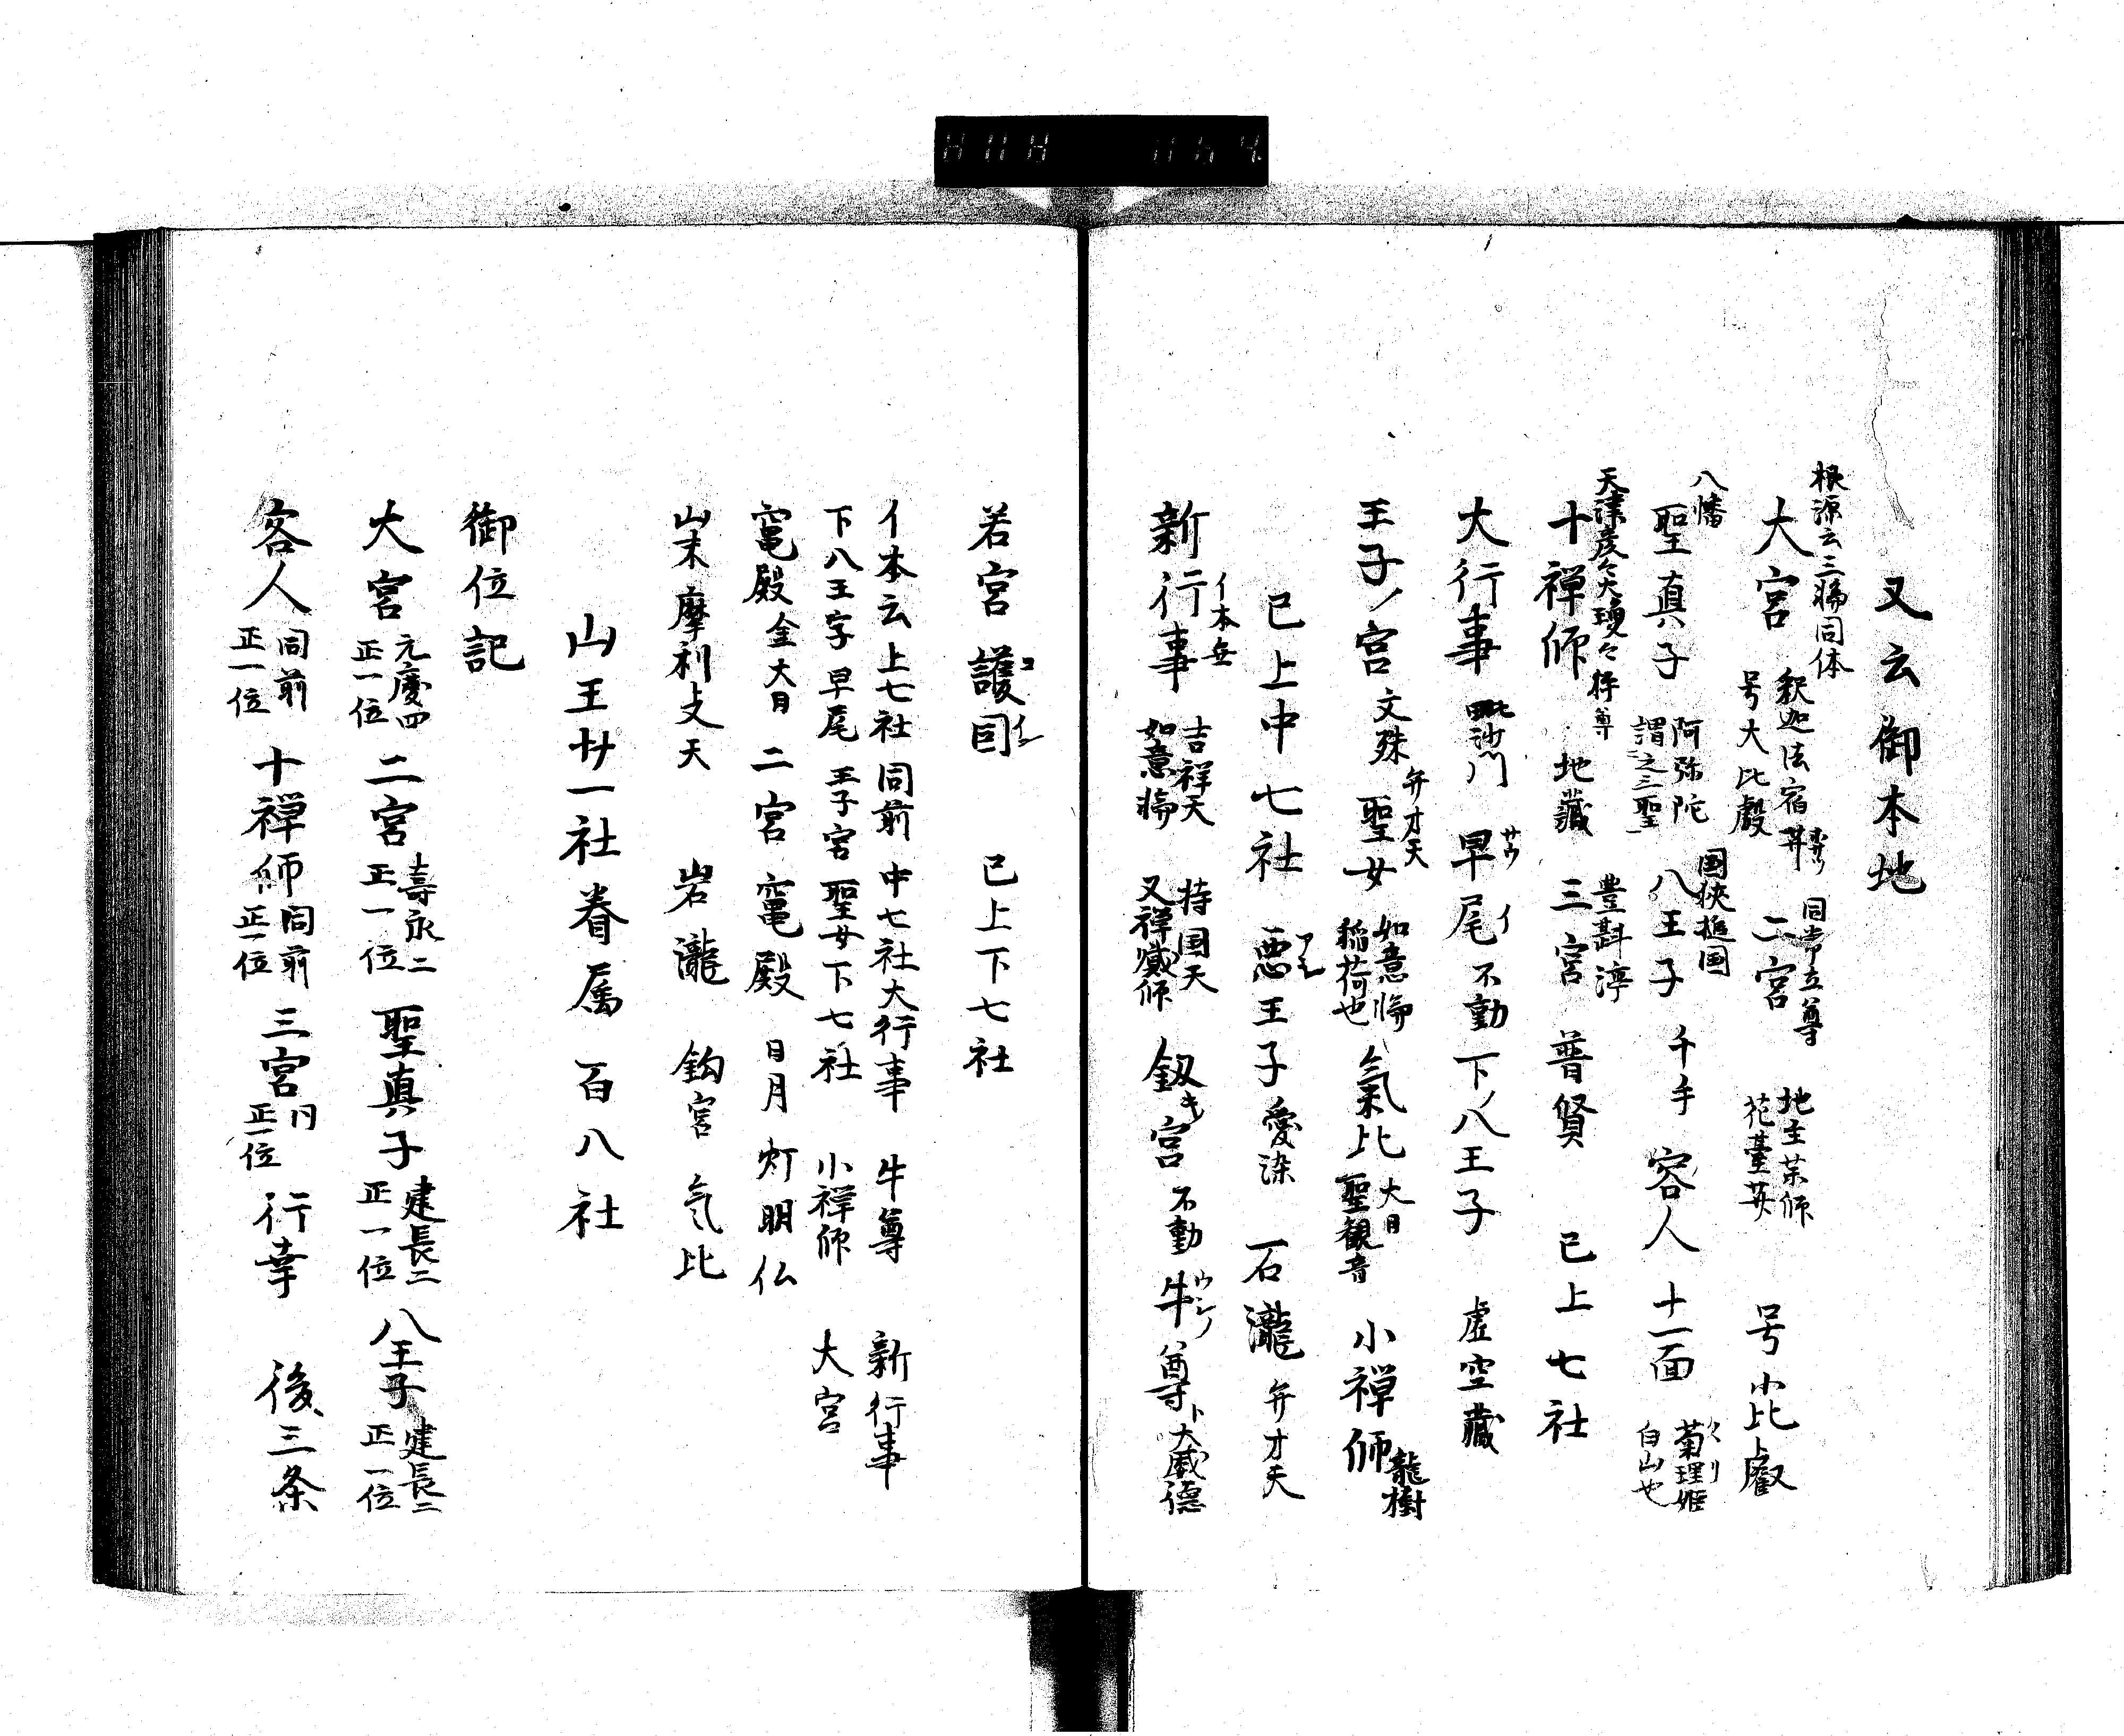 又云御本地
根源云三輪同体
大宮 釈迦法宿菩薩 号大比叡 二宮 国常立尊 地主薬師 花台菩薩 号小比叡
八幡
聖真子 阿弥陀 謂之三聖 八王子 国狭槌国 千手 客人 十一面 菊理姫 白山也
天津彦々火瓊々杵尊
十禅師 地蔵 三宮 豊斟渟 普賢 已上七社
大行事 毘沙門 早尾 不動 下八王子 虚空蔵
王子ノ宮 文殊 聖女 弁才天 如意輪 稲荷也 氣比 大日 聖観音 小禅師 龍樹
已上中七社 悪王子 愛染 石瀧 弁才天
イ本無
新行事 吉祥天 如意輪 持国天 又禅蔵師 釼宮 不動 牛尊 大威徳
若宮 護因 已上下七社
イ本云上七社同前 中七社大行事 牛尊 新行事
下八王子 早尾 王子宮 聖女下七社 小禅師 大宮
竃殿 金大日 二宮竃殿 日月灯明仏
山末 摩利支天 岩瀧 釼宮 気比
山王廿一社眷属百八社
御位記
大宮 元慶四 正一位 二宮 寿永二 正一位 聖真子 建長二 正一位 八王子 建長二 正一位
客人 同前 正一位 十禅師 同前 正一位 三宮 同 正一位 行幸 後三条